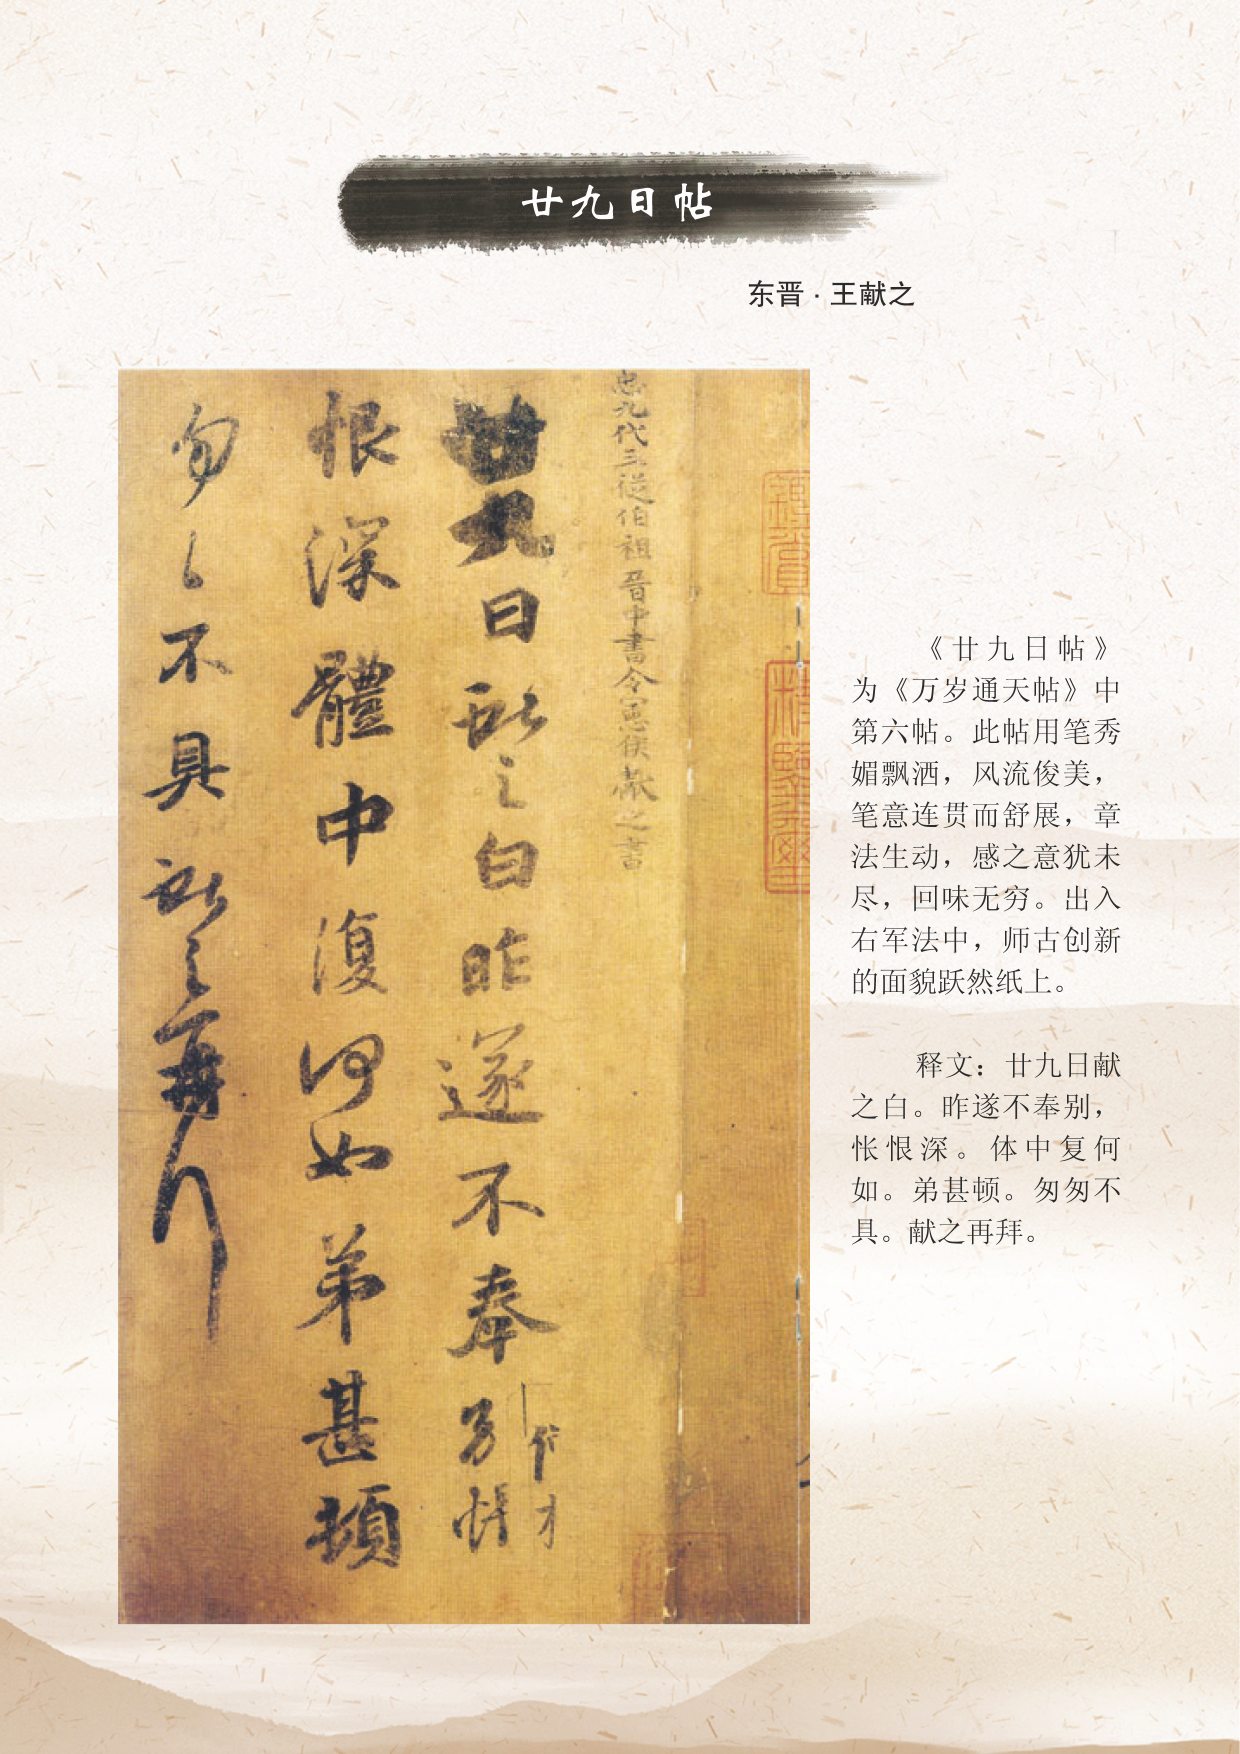 廿九日帖
东晋·王献之
臣九代三從伯祖晉中書令憲侯獻之書
廿九日獻之白昨遂不奉別悵
恨深體中復何如弟甚頓
匆々不具獻之再拜
《廿九日帖》
为《万岁通天帖》中
第六帖。此帖用笔秀
媚飘洒，风流俊美，
笔意连贯而舒展，章
法生动，感之意犹未
尽，回味无穷。出入
右军法中，师古创新
的面貌跃然纸上。
释文：廿九日献
之白。昨遂不奉别，
怅恨深。体中复何
如。弟甚顿。匆匆不
具。献之再拜。